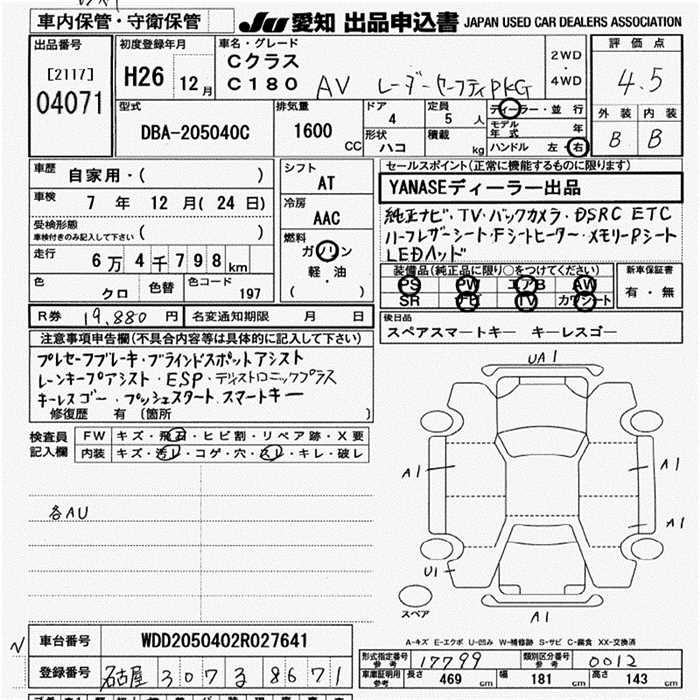 車内保管・守衛保管
JU 愛知 出品申込書 JAPAN USED CAR DEALERS ASSOCIATION
出品番号
[2117]
04071
初度登録年月
H26 12月
車名・グレード
Cクラス
C180 AV レーダーセーフティPKG
2WD
・
4WD
評価点
4.5
外装 内装
B B
型式
DBA-205040C
排気量
1600 CC
ドア
4
定員
5 人
形状
ハコ
積載
kg
ディーラー・並行
モデル年式 年
ハンドル 左・右
車歴 自家用・( )
車検 7 年 12 月(24 日)
受検形態
車検付きのみ記入して下さい ( )
走行 6万4千798 km
色 クロ 色替 色コード 197
シフト
AT
冷房
AAC
燃料
ガソリン
軽・油
( )
セールスポイント(正常に機能するものに限ります)
YANASEディーラー出品
純正ナビ・TV・バックカメラ・DSRC ETC
ハーフレザーシート・Fシートヒーター・メモリーPシート
LEDヘッド
装備品(純正品に限り○をつけてください)
PS PW エアB AW
SR ナビ TV カワシート
新車保証書
有・無
R券 19,880 円 名変通知期限 月 日
後日品
スペアスマートキー キーレスゴー
注意事項申告欄(不具合内容等は具体的に記入して下さい)
プレセーフブレーキ・ブラインドスポットアシスト
レーンキープアシスト・ESP・ディストロニックプラス
キーレスゴー・プッシュスタート.スマートキー
修復歴 有 〔箇所 〕
検査員記入欄
FW キズ・飛石・ヒビ割・リペア跡・X要
内装 キズ・汚レ・コゲ・穴・スレ・キレ・破レ
各AU
UA1
A1
A1
A1
U1
スペア
A1
A-キズ E-エクボ U-凹み W-補修跡 S-サビ C-腐食 XX-交換済
車台番号 WDD2050402R027641
登録番号 名古屋 307 ヌ 8671
形式指定番号 参考 17799 類別区分番号 参考 0012
車庫証明用参考 長さ 469 cm 幅 181 cm 高さ 143 cm